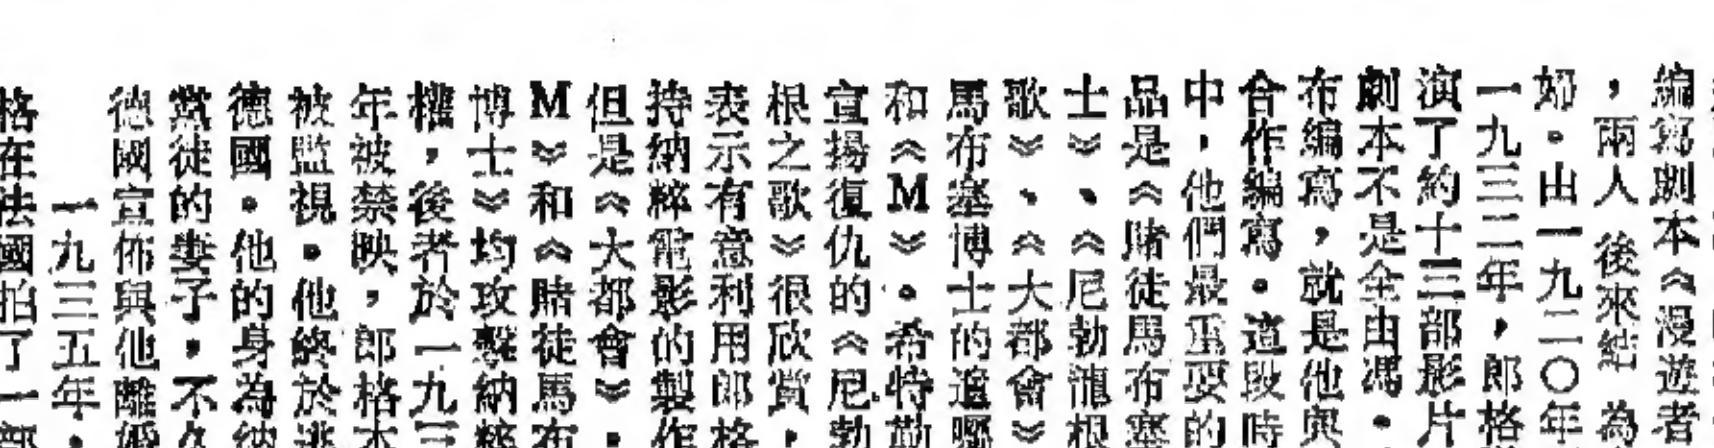 編寫劇本《漫遊者
，兩人 後來結 為
婦。由一九二〇年
一九三二年，郎格
演了約十三部影片
劇本不是全由馮·
布編寫，就是他與
合作編寫。這段時
中，他們最重要的
品是《賭徒馬布塞
士》、《尼勃龍根
歌》、《大都會》
馬布塞博士的遺囑
和《M》。希特勒
宣揚復仇的《尼勃
根之歌》很欣賞，
表示有意利用郎格
持納粹電影的製作
但是《大都會》，
M》和《賭徒馬布
博士》均攻擊納粹
權，後者於一九三
年被禁映，郎格本
被監視。他終於逃
德國。他的身為納
黨徒的妻子，不久
德國宣佈與他離婚
一九三五年，
格在法國拍了一部